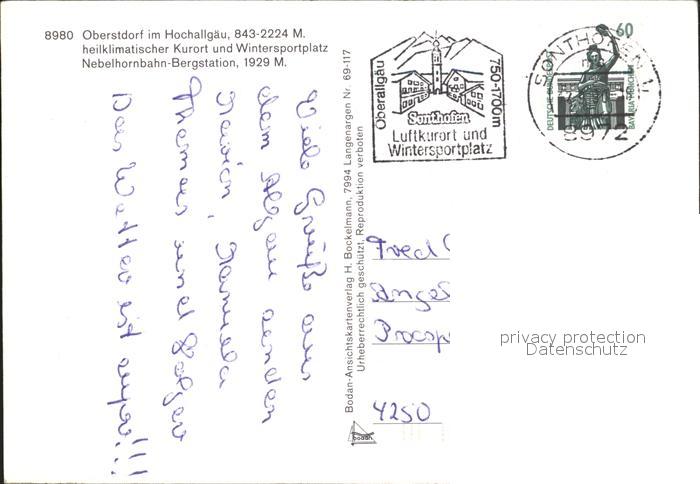 8980 Oberstdorf im Hochallgäu, 843-2224 M.
heilklimatischer Kurort und Wintersportplatz
Nebelhornbahn-Bergstation, 1929 M.
Viele Grüße aus
dem Allgäu senden
Marion, Manuela
Thomas und Holger
Das Wetter ist super!!!
Bodan-Ansichtskartenverlag H. Bockelmann, 7994 Langenargen Nr. 69-117
Urheberrechtlich geschützt, Reproduktion verboten
bodan
Oberallgäu
750-1700m
Sonthofen
Luftkurort und
Wintersportplatz
SONTHOFEN 1
8972
60
DEUTSCHE BUNDESPOST
BAVARIA MÜNCHEN
Fred
Angel
Prosp
4250
privacy protection
Datenschutz